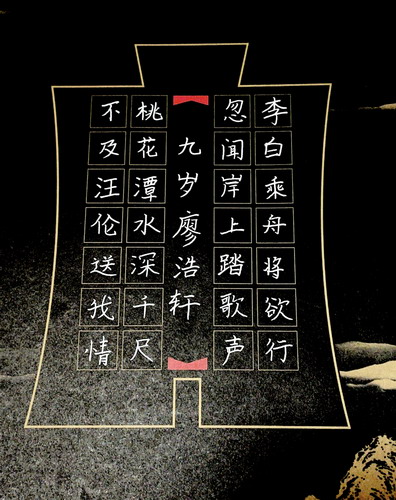 李白乘舟将欲行
忽闻岸上踏歌声
九岁廖浩轩
桃花潭水深千尺
不及汪伦送我情